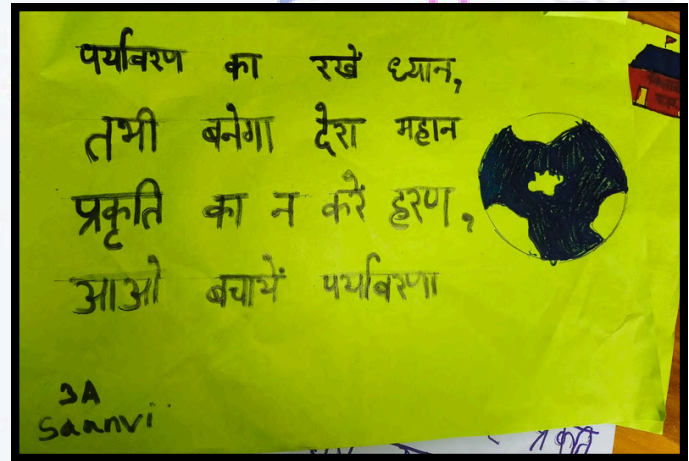 पर्यावरण का रखें ध्यान,
तभी बनेगा देश महान
प्रकृति का न करें हरण,
आओ बचायें पर्यावरण।
3A
Saanvi
प्रकृति